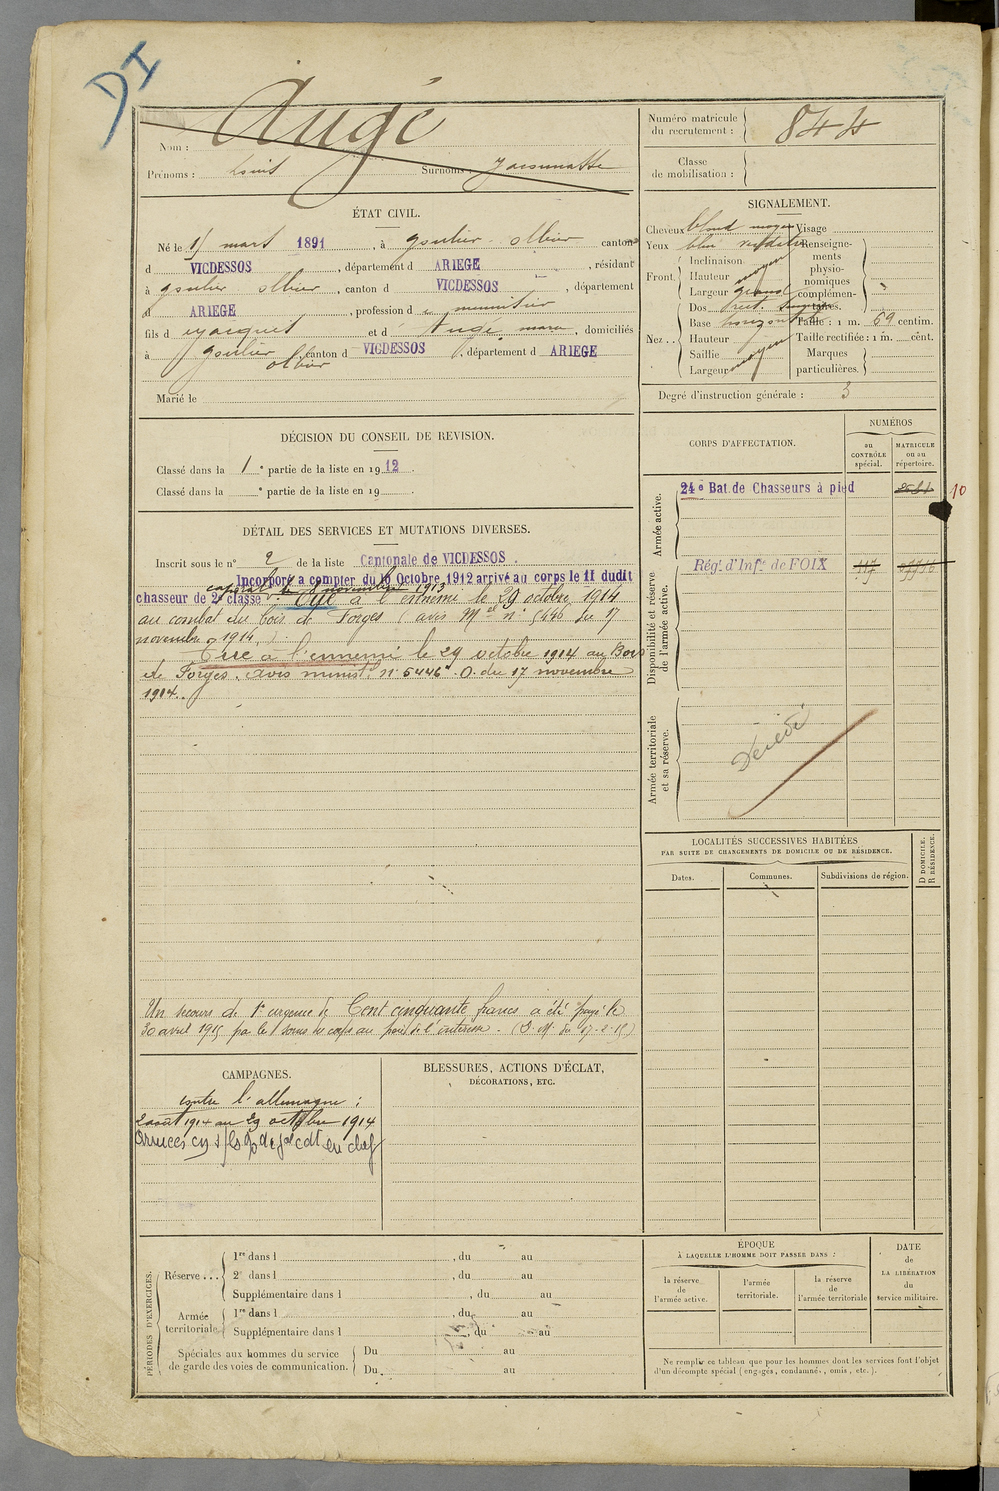 DI
Nom : Augé
Prénoms : Louis Surnoms :
Numéro matricule du recrutement : 844
Classe de mobilisation :
ÉTAT CIVIL.
Né le 15 mars 1891, à Goulier-Olbier canton
d VICDESSOS, département d ARIEGE, résidant
à Goulier Olbier, canton d VICDESSOS, département
d ARIEGE, profession d
fils d et d Augé, domiciliés
à Goulier Olbier, canton d VICDESSOS, département d ARIEGE
Marié le
SIGNALEMENT.
Cheveux blond moyen
Yeux bleu
Front. Inclinaison moyen
Hauteur
Largeur grand
Nez.. Dos rect.
Base horizontale
Hauteur
Saillie moyen
Largeur moyen
Visage
Renseignements physionomiques complémentaires.
Taille : 1 m. 69 centim.
Taille rectifiée : 1 m. cent.
Marques particulières.
Degré d'instruction générale : 3
DÉCISION DU CONSEIL DE REVISION.
Classé dans la 1e partie de la liste en 1912.
Classé dans la e partie de la liste en 19 .
CORPS D'AFFECTATION.
NUMÉROS
au CONTRÔLE spécial.
MATRICULE ou au répertoire.
Armée active.
24e Bat. de Chasseurs à pied
10
Disponibilité et réserve de l'armée active.
Régt. d'Infie de FOIX 117
Armée territoriale et sa réserve.
Décédé
DÉTAIL DES SERVICES ET MUTATIONS DIVERSES.
Inscrit sous le n° 2 de la liste Cantonale de VICDESSOS
Incorporé à compter du 10 Octobre 1912 arrivé au corps le 11 dudit
caporal le 8 novembre 1913
chasseur de 2e classe. Tué à l'ennemi le 29 octobre 1914
au combat du bois de Forges (avis Mel n° 5446 du 17
novembre 1914.)
Tué à l'ennemi le 29 octobre 1914 au Bois
de Forges. Avis minist.l n° 5446. O. du 17 novembre
1914.
Un secours de 1e urgence de Cent cinquante francs a été payé le
30 avril 1915 par le
LOCALITÉS SUCCESSIVES HABITÉES
PAR SUITE DE CHANGEMENTS DE DOMICILE OU DE RÉSIDENCE.
Dates.
Communes.
Subdivisions de région.
D DOMICILE.
R RÉSIDENCE.
CAMPAGNES.
contre l'allemagne :
2 août 1914 au 29 octobre 1914
Armées
BLESSURES, ACTIONS D'ÉCLAT,
DÉCORATIONS, ETC.
PÉRIODES D'EXERCICES.
Réserve...
1re dans l , du au
2e dans l , du au
Supplémentaire dans l , du au
Armée territoriale
1re dans l , du au
Supplémentaire dans l , du au
Spéciales aux hommes du service de garde des voies de communication.
Du au
Du au
ÉPOQUE
À LAQUELLE L'HOMME DOIT PASSER DANS :
la réserve de l'armée active.
l'armée territoriale.
la réserve de l'armée territoriale
DATE de LA LIBÉRATION du service militaire.
Ne remplir ce tableau que pour les hommes dont les services font l'objet
d'un décompte spécial (engagés, condamnés, omis, etc.).